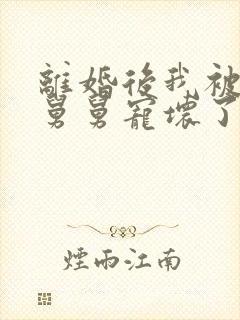 離婚後我被
舅舅寵壞了
煙雨江南